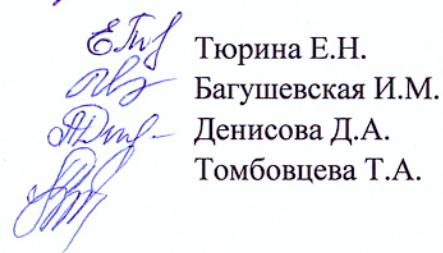 Тюрина Е.Н.
Багушевская И.М.
Денисова Д.А.
Томбовцева Т.А.